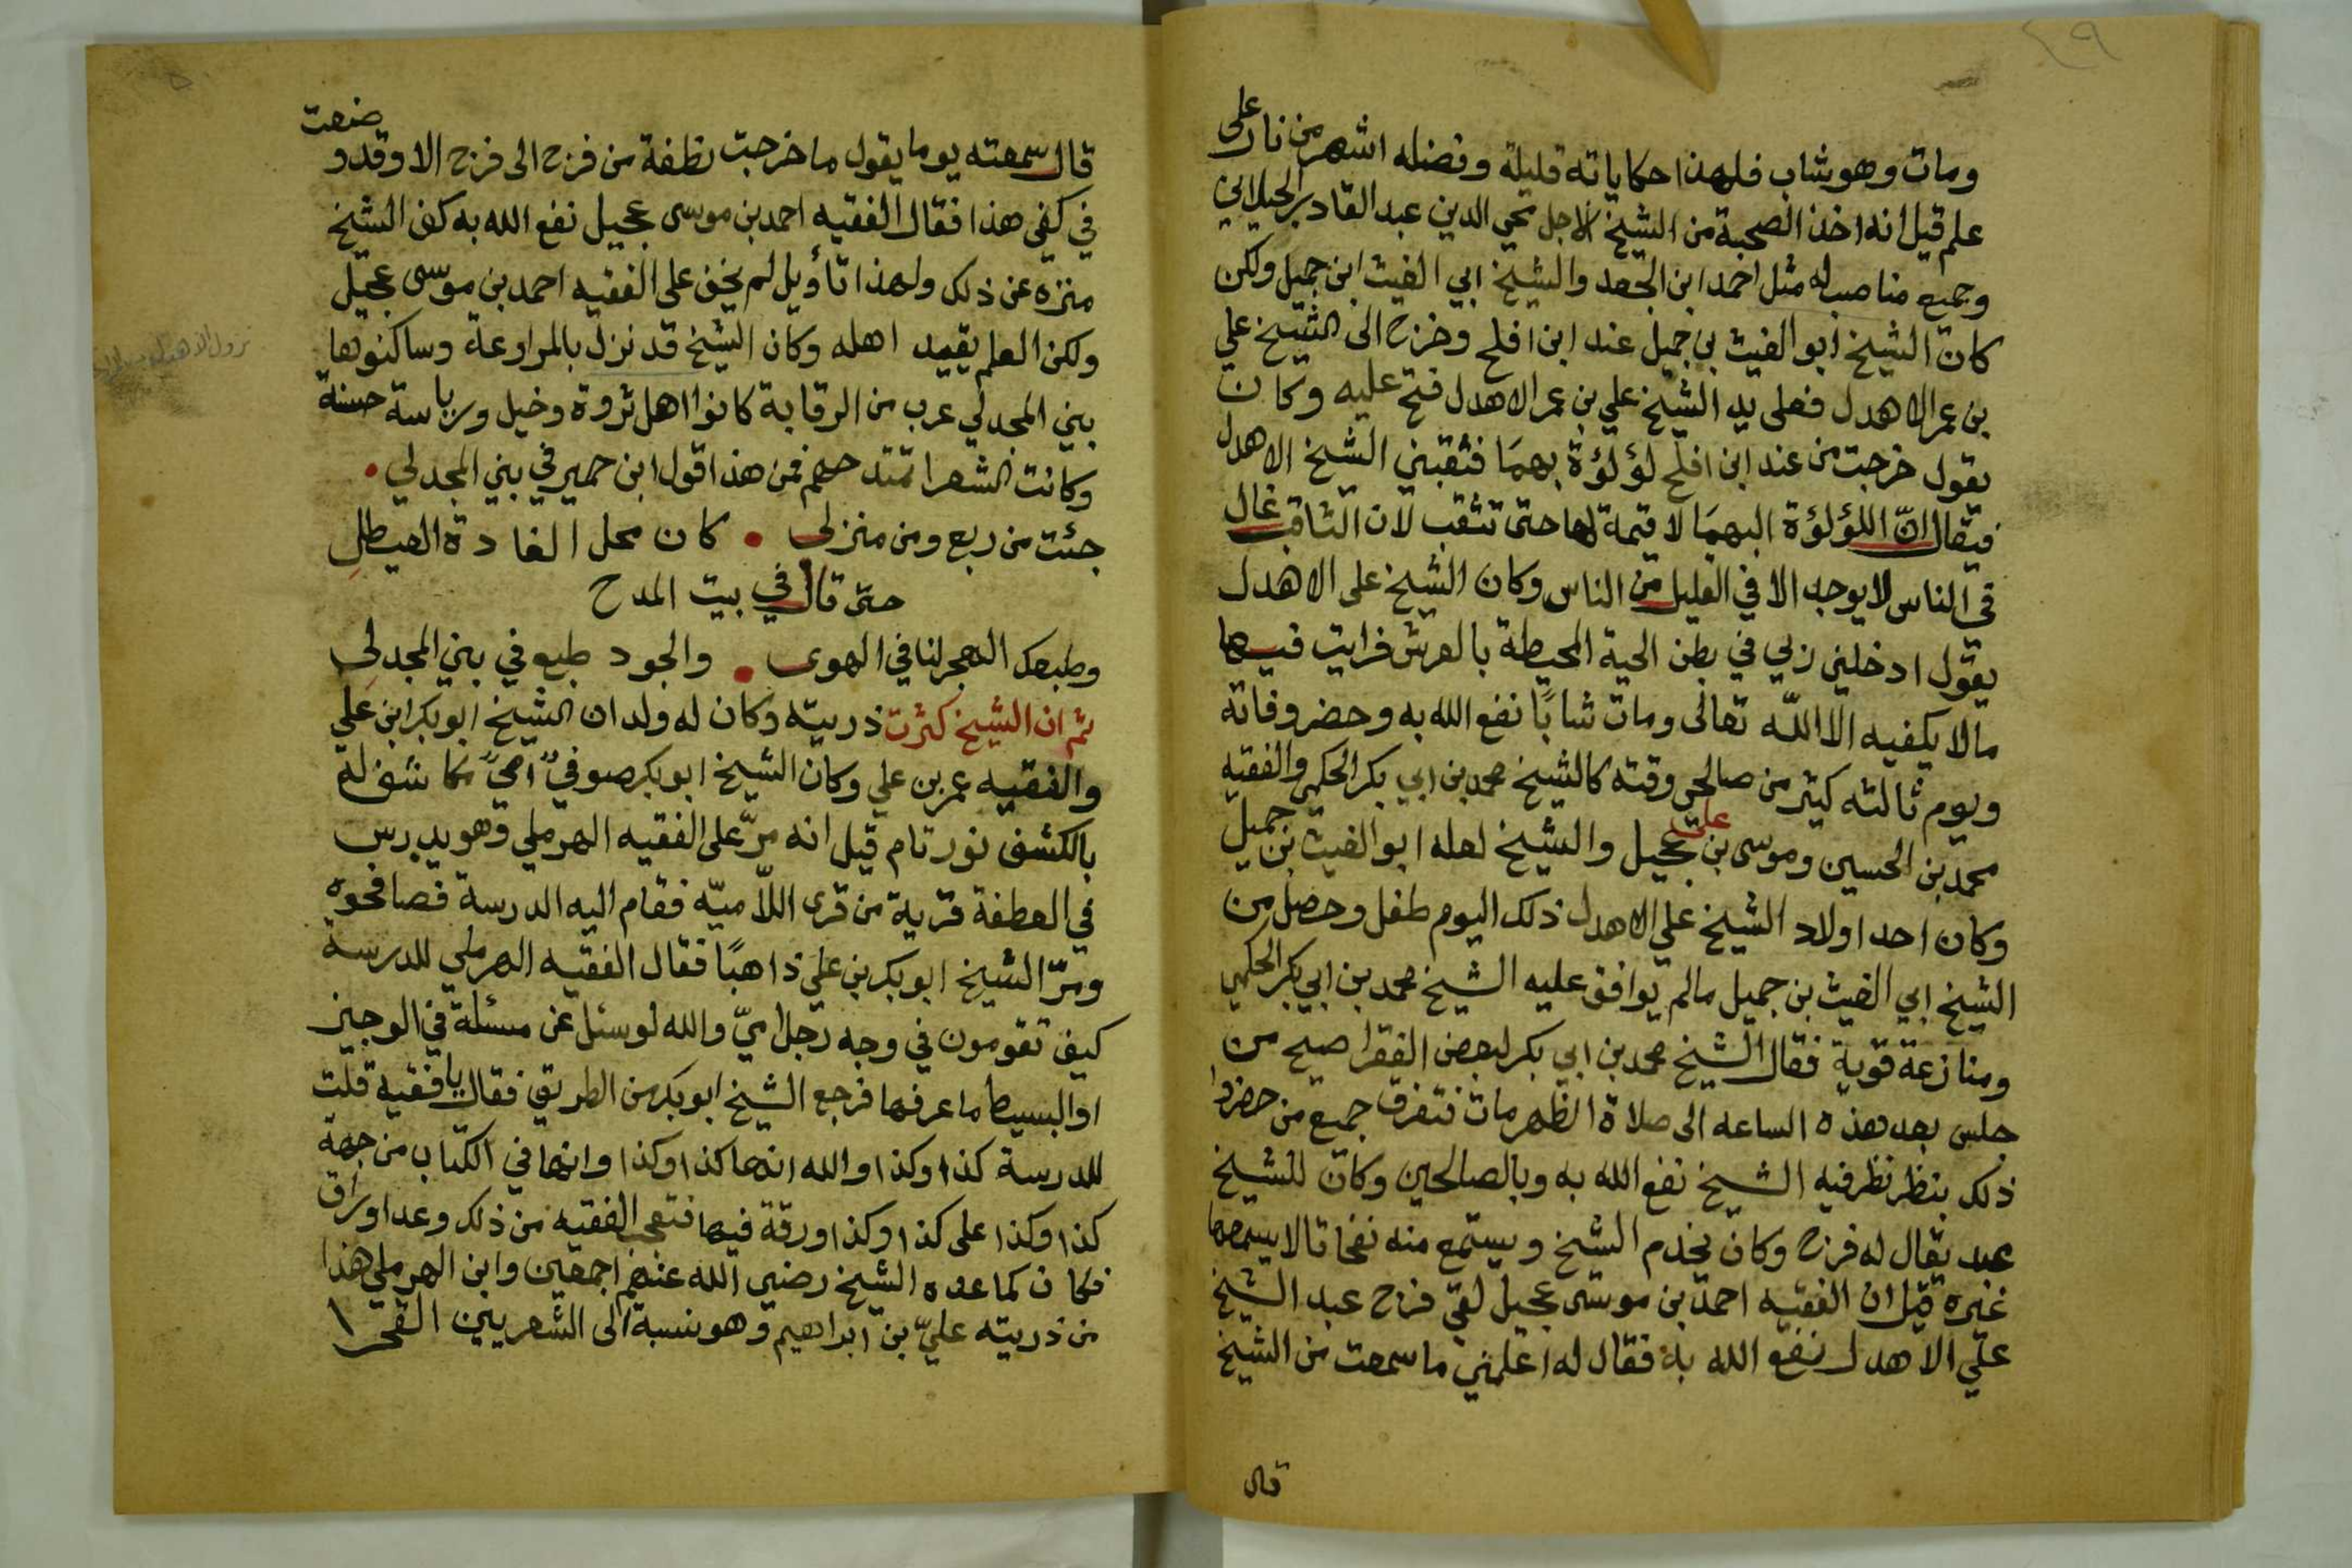 ٤٩
ومات وهو شاب فلهذا حكاياته قليلة وفضله اشهر من نار على
علم قيل انه اخذ الصحبة من الشيخ الاجل محي الدين عبد القادر الجيلاني
وجميع مناصب له مثل احمد ابن الجعد والشيخ ابي الغيث ابن جميل ولكن
كان الشيخ ابو الغيث بن جميل عند ابن افلح وخرج الى الشيخ علي
بن عمر الاهدل فعلى يد الشيخ علي بن عمر الاهدل فتح عليه وكان
يقول خرجت من عند ابن افلح لؤلؤة بهما فثقبني الشيخ الاهدل
فيقال انّ اللؤلؤة البهما لا قيمة لها حتى تثقب لان الثاقب غال
في الناس لا يوجد الا في القليل من الناس وكان الشيخ على الاهدل
يقول ادخلني ربي في بطن الحية المحيطة بالعرش فرايت فيها
مالا يكفيه الا اللّه تعالى ومات شابًا نفع الله به وحضر وفاته
ويوم ثالثه كثير من صالحي وقته كالشيخ محمد بن ابي بكر الحكمي والفقيه
محمد بن الحسين وموسى بن علي عجيل والشيخ لعله ابو الغيث بن جميل
وكان احد اولاد الشيخ علي الاهدل ذلك اليوم طفل وحصل من
الشيخ ابي الغيث بن جميل مالم يوافق عليه الشيخ محمد بن ابي بكر الحكمي
ومنازعة قوية فقال الشيخ محمد بن ابي بكر لبعض الفقرا صيح من
جلس بعد هذه الساعه الى صلاة الظهر مات فتفرق جميع من حضر وا
ذلك بنظر نظر فيه الشيخ نفع الله به وبالصالحين وكان للشيخ
عبد يقال له فرج وكان يخدم الشيخ ويستمع منه نفحات الا يسمعها
غيره قيل ان الفقيه احمد بن موسى عجيل لقي فرج عبد الشيخ
علي الاهدل نفع الله به فقال له اعلمني ما سمعت من الشيخ
قال
قال سمعته يوما يقول ما خرجت نطفة من فرج الى فرج الا وقد وضعت
في كفي هذا فقال الفقيه احمد بن موسى عجيل نفع الله به كف الشيخ
منزه عن ذلك ولهذا تأويل لم يخف على الفقيه احمد بن موسى عجيل
ولكن العلم يقيد اهله وكان الشيخ قد نزل بالمراوعة وساكنوها
بني المجدلي عرب من الرقابة كانوا اهل ثروة وخيل ورياسة حسنة
وكانت الشعرا تمتدحهم فمن هذا قول ابن حمير في بني المجدلي
جئت من ربع ومن منزلى كان محل الغادة العيطلِ
حتى قال في بيت المدح
وطبعك الهجر لنا في الهوى والجود طبع في بني المجدلي
ثم ان الشيخ كثرت ذريته وكان له ولدان الشيخ ابو بكر ابن علي
والفقيه عمر بن علي وكان الشيخ ابو بكر صوفيٌ اميٌ مكاشف له
بالكشف نور تام قيل انه مرّ على الفقيه الهرملي وهو يدرس
في العطفة قرية من قرى اللّاميّه فقام اليه الدرسة فصافحوه
ومرّ الشيخ ابو بكر بن علي ذاهبًا فقال الفقيه الهرملي للدرسة
كيف تقومون في وجه رجل اميّ والله لو سئل عن مسئلة في الوجيز
او البسيط ما عرفها فرجع الشيخ ابو بكر من الطريق فقال يا فقيه قلت
للدرسة كذا وكذا والله انها كذا وكذا وانها في الكتاب من جهة
كذا وكذا على كذا وكذا ورقة فيها فتعجب الفقيه من ذلك وعد اوراق
فكان كما عده الشيخ رضي الله عنهم اجمعين وابن الهرملي هذا
من ذريته عليّ بن ابراهيم وهو نسبة الى الشعريين القحرا